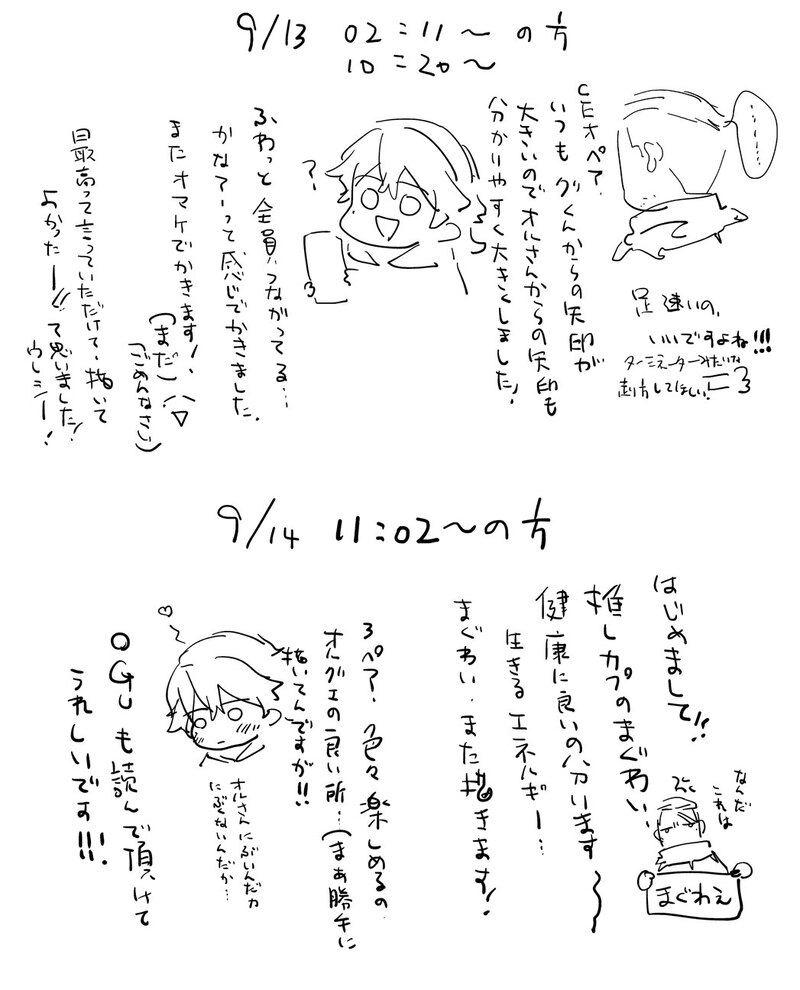 9/13 02:11〜の方
10:20〜
……
CEオペア、
いつもグくんからの矢印が
大きいのでオルさんからの矢印も
分かりやすく大きくしました!
?
ふわっと全員つながってる…
かなアーって感じでかきました。
またオマケでかきます!
(まだ)
(ごめんなさい)
最高って言っていただけて、描いて
よかったー!!て思いました!
ウレシー!
足速いの、
いいですよね!!!
ターミネーターみたいな
走り方してほしい
9/14 11:02〜の方
はじめまして!!
推しカプのまぐわい、
健康に良いの分います〜
生きるエネルギー…
まぐわい、また描きます!
なんだ
これは
まぐわえ
3ペア、色々楽しめるの
オルグエの良い所…(まぁ勝手に
描いてんですが!!
オルさんにぶいんだか
にぶくないんだか…
OGuも読んで頂けて
うれしいです!!!